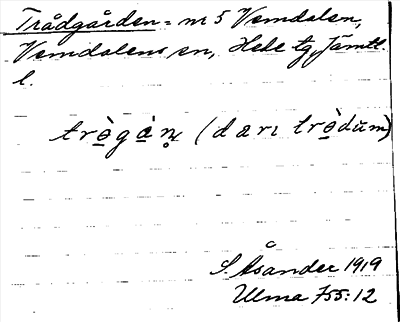 Trådgården = nr 5 Vemdalen,
Vemdalens sn, Hede tg, Jämtl.
l.
trò̱gà̱n̥ (dærɪ trò̱dŭm)
S. Åsander 1919
Ulma 755:12